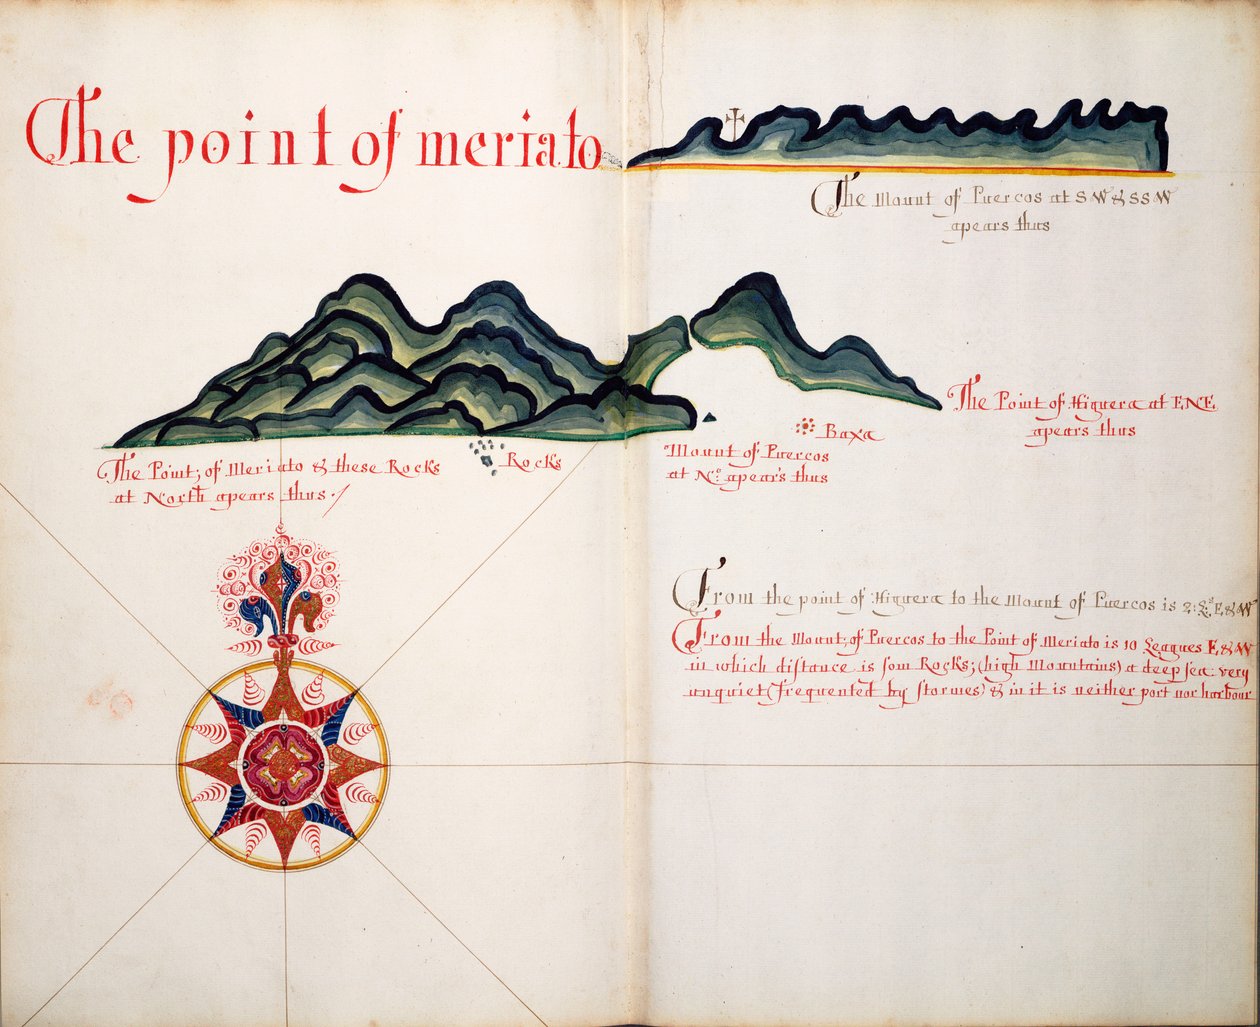 The point of meriato
The Mount of Puercos at SW & SSW
apears thus
The Point of Higuera at ENE
apears thus
Baxa
Mount of Puercos
at No: apears thus
Rocks
The Point, of Meriato & these Rocks
at North apears thus
From the point of Higuera to the Mount of Puercos is 2: Ls E, & W
From the Mount, of Puercos to the Point of Meriato is 10 Leagues E, & W
in which distance is som Rocks; (high Mountains) a deep sea very
unquiet (frequented by stormes) & in it is neither port nor harbour